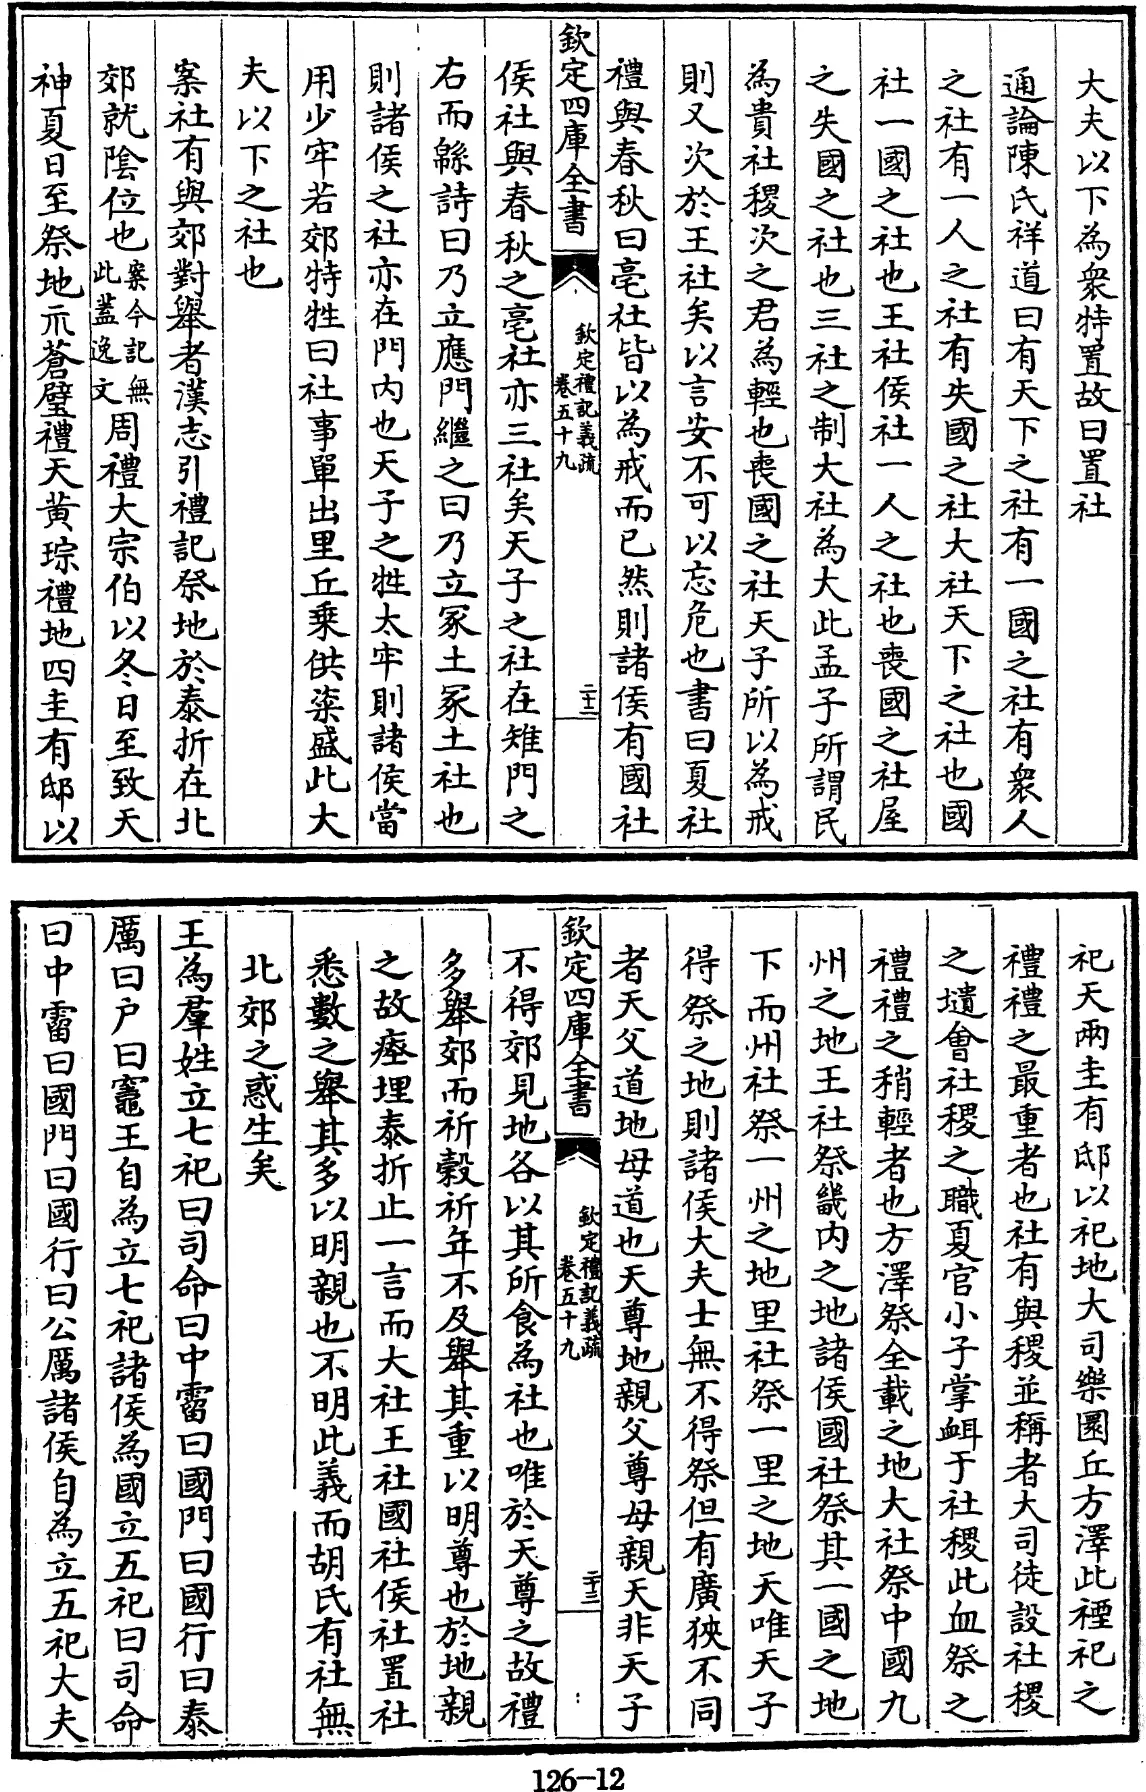 大夫以下為衆特置故曰置社
通論陳氏祥道曰有天下之社有一國之社有衆人
之社有一人之社有失國之社大社天下之社也國
社一國之社也王社侯社一人之社也喪國之社屋
之失國之社也三社之制大社為大此孟子所謂民
為貴社稷次之君為輕也喪國之社天子所以為戒
則又次於王社矣以言安不可以忘危也書曰夏社
禮與春秋曰亳社皆以為戒而已然則諸侯有國社
欽定四庫全書
欽定禮記義疏
卷五十九
二十二
侯社與春秋之亳社亦三社矣天子之社在雉門之
右而緜詩曰乃立應門繼之曰乃立冢土冢土社也
則諸侯之社亦在門内也天子之牲太牢則諸侯當
用少牢若郊特牲曰社事單出里丘乗供粢盛此大
夫以下之社也
案社有與郊對舉者漢志引禮記祭地於泰折在北
郊就陰位也案今記無此蓋逸文周禮大宗伯以冬日至致天
神夏日至祭地示蒼璧禮天黄琮禮地四圭有邸以
祀天兩圭有邸以祀地大司樂圜丘方澤此禋祀之
禮禮之最重者也社有與稷並稱者大司徒設社稷
之壝㑹社稷之職夏官小子掌衈于社稷此血祭之
禮禮之稍輕者也方澤祭全載之地大社祭中國九
州之地王社祭畿内之地諸侯國社祭其一國之地
下而州社祭一州之地里社祭一里之地天唯天子
得祭之地則諸侯大夫士無不得祭但有廣狹不同
者天父道地母道也天尊地親父尊母親天非天子
欽定四庫全書
欽定禮記義疏
卷五十九
二十三
不得郊見地各以其所食為社也唯於天尊之故禮
多舉郊而祈穀祈年不及舉其重以明尊也於地親
之故瘞埋泰折止一言而大社王社國社侯社置社
悉數之舉其多以明親也不明此義而胡氏有社無
北郊之惑生矣
王為羣姓立七祀曰司命曰中霤曰國門曰國行曰泰
厲曰户曰竈王自為立七祀諸侯為國立五祀曰司命
曰中霤曰國門曰國行曰公厲諸侯自為立五祀大夫
126-12